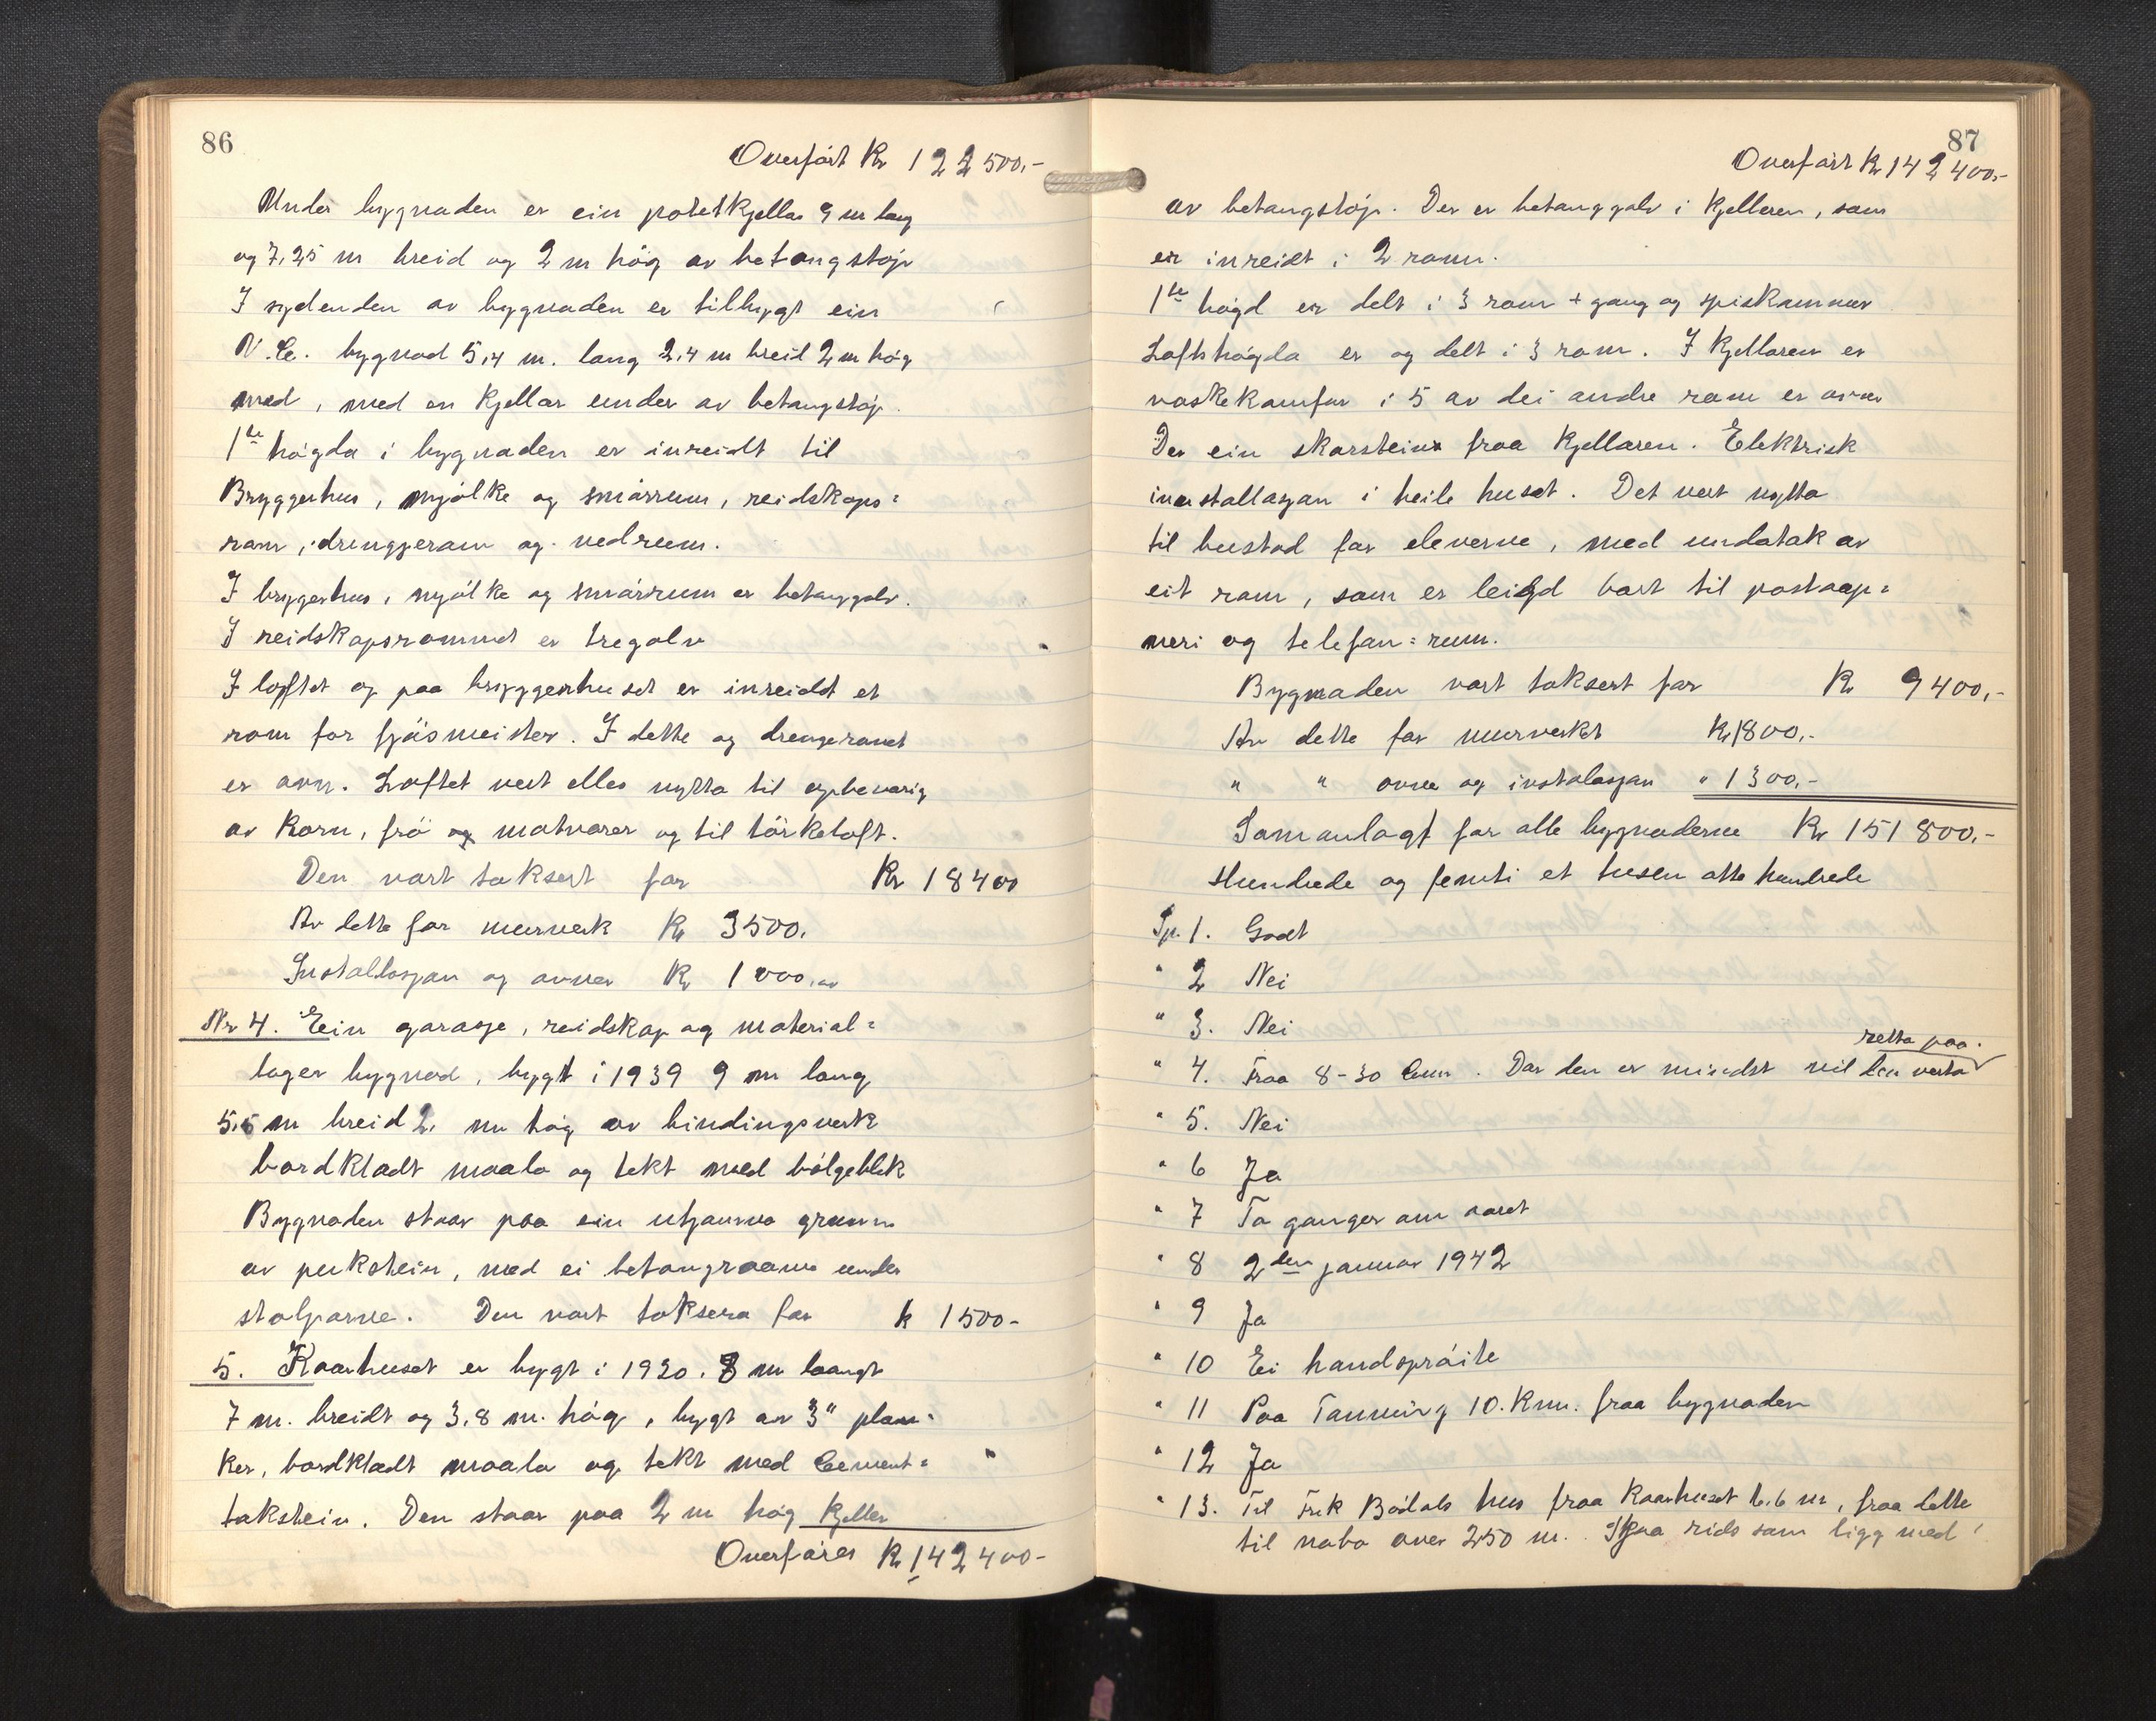 86
Overført Kr 122 500,-
Under bygnaden er ein potetkjellar 9 m lang
og 7,25 m breid og 2 m høg av betongstøp
I sydenden av bygnaden er tilbygt ein
V.C. bygnad 5,4 m. lang 2,4 m breid 2 m høg
med, med en kjellar under av betongstøp.
1ste høgda i bygnaden er inreidt til
Bryggerhus, mjølke og smørrum, reidskaps=
rom, drenggerom og vedrum.
I bryggerhus, mjølke og smørrum er betonggolv.
I reidskapsrommet er tregolv
I loftet og paa bryggerhuset er inreidd et
rom for fjøsmeister. I dette og drengeromet
er ovn. Loftet vert elles nytta til opbevarig
av korn, frø og matvarer og til tørkeloft.
Den vart taksert for Kr 18400
Av dette for murverk Kr 3500.
Installasjon og ovner Kr 1000,00
Nr 4. Ein garasje, reidskap og material=
lager bygnad, bygt i 1939 9 m lang
5,5 m breid 2, m høg av bindingsverk
bordkladt maala og tekt med bølgeblik
Bygnaden staar paa ein utjamna grunn
av pukstein, med ei betongraama under
stolparne. Den vart taksera for k 1500-
5. Kaarhuset er bygt i 1920. 8 m laangt
7 m. breidt og 3,8 m. høg, bygt av 3" plan=
ker, bordkladt maala og tekt med Cement=
takstein. Den staar paa 2 m høg kjeller
Overføres Kr 142 400-
87
Overført Kr 142 400,-
av betongstøp. Der er betonggolv i kjelleren, som
er inreidt i 2 romm.
1ste høgd er delt i 3 rom + gang og spiskammer
Loftshøgda er og delt i 3 rom. I kjellaren er
vaskekomfur i 5 av dei andre rom er ovner
Der ein skorstein fraa kjellaren. Elektrisk
installasjon i heile huset. Det vert nytta
til bustad for eleverne, med undatak av
eit rom, som er leigd bort til postaap=
neri og telefon=rum.
Bygnaden vart taksert for Kr 9400,-
Av dette for murverket Kr 1800,-
" " ovner og instalasjon " 1300,-
Samanlagt for alle bygnaderne Kr 151 800,-
Hundrede og femti et tusen otte hundrede
Sp. 1. Godt
" 2 Nei
" 3. Nei
retta paa.
" 4. Fraa 8-30 Cm. Dar den er mindst vil den verta
" 5. Nei
" 6 Ja
" 7 To ganger om aaret
" 8 2den januar 1942
" 9 Ja
" 10 Ei handsprøite
" 11 Paa Tanning 10. Km. fraa bygnaden
" 12 Ja
" 13. Til Frk Bødals hus fraa Kaarhuset 6,6 m, fraa dette
til nabo over 250 m. Sjaa rids som ligg med!